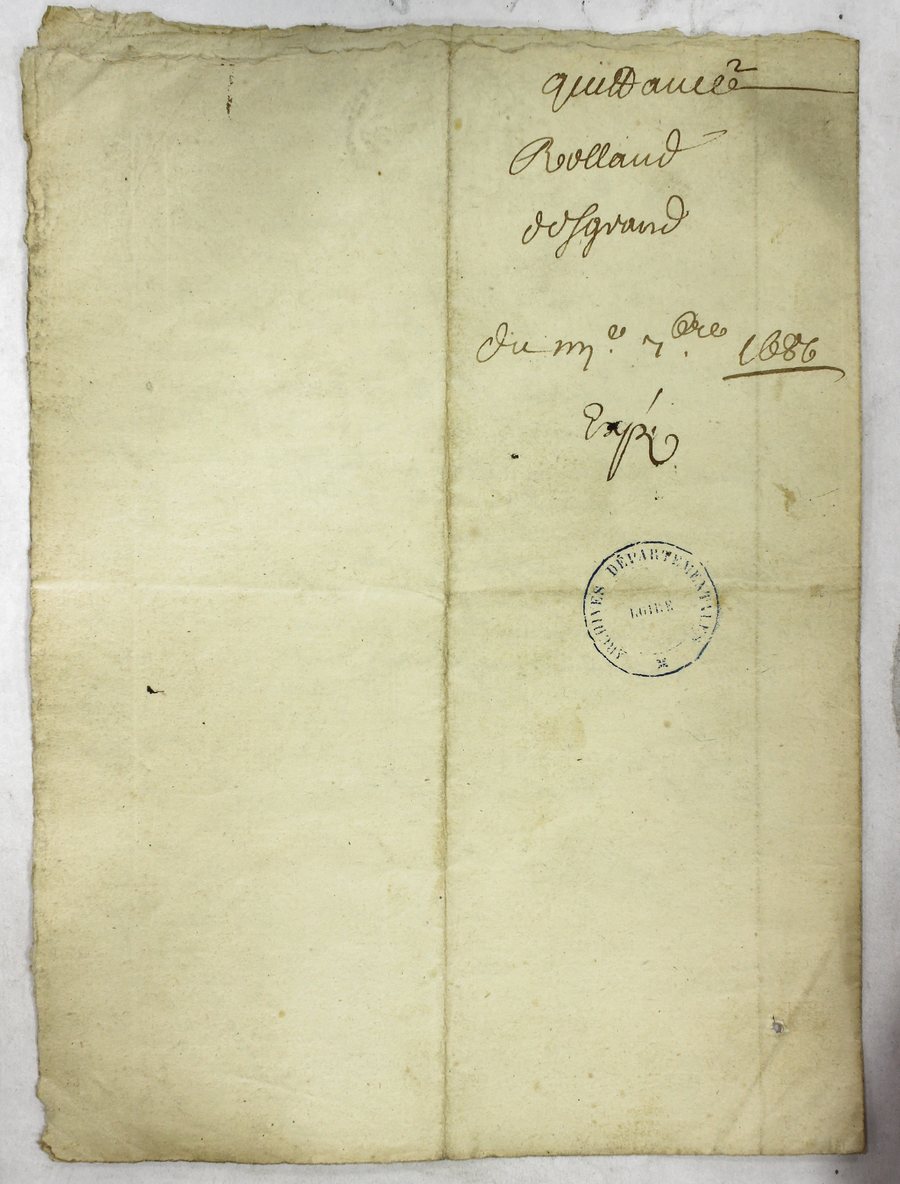 quittance
Rolland
desgrand
du m.e 7.bre 1686
Expé
ARCHIVES DÉPARTEMENTALES
LOIRE